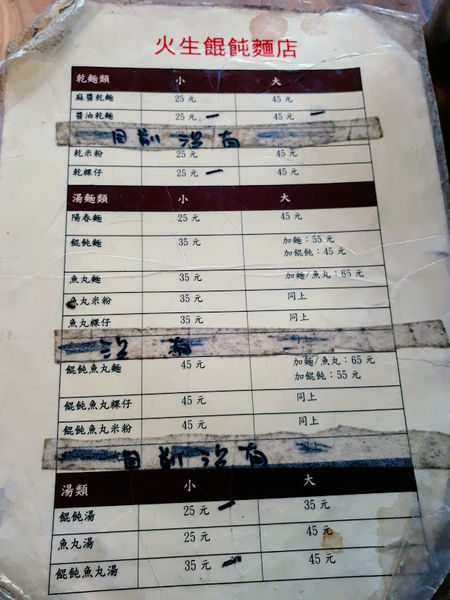 火生餛飩麵店
乾麵類 小 大
麻醬乾麵 25 元 45 元
醬油乾麵 25 元 45 元
目前沒有
乾米粉 25 元 45 元
乾粿仔 25 元 45 元
湯麵類 小 大
陽春麵 25 元 45 元
餛飩麵 35 元 加麵：55 元
加餛飩：45 元
魚丸麵 35 元 加麵/魚丸：65 元
魚丸米粉 35 元 同上
魚丸粿仔 35 元 同上
沒有
餛飩魚丸麵 45 元 加麵/魚丸：65 元
加餛飩：55 元
餛飩魚丸粿仔 45 元 同上
餛飩魚丸米粉 45 元 同上
目前沒有
湯類 小 大
餛飩湯 25 元 35 元
魚丸湯 25 元 45 元
餛飩魚丸湯 35 元 45 元